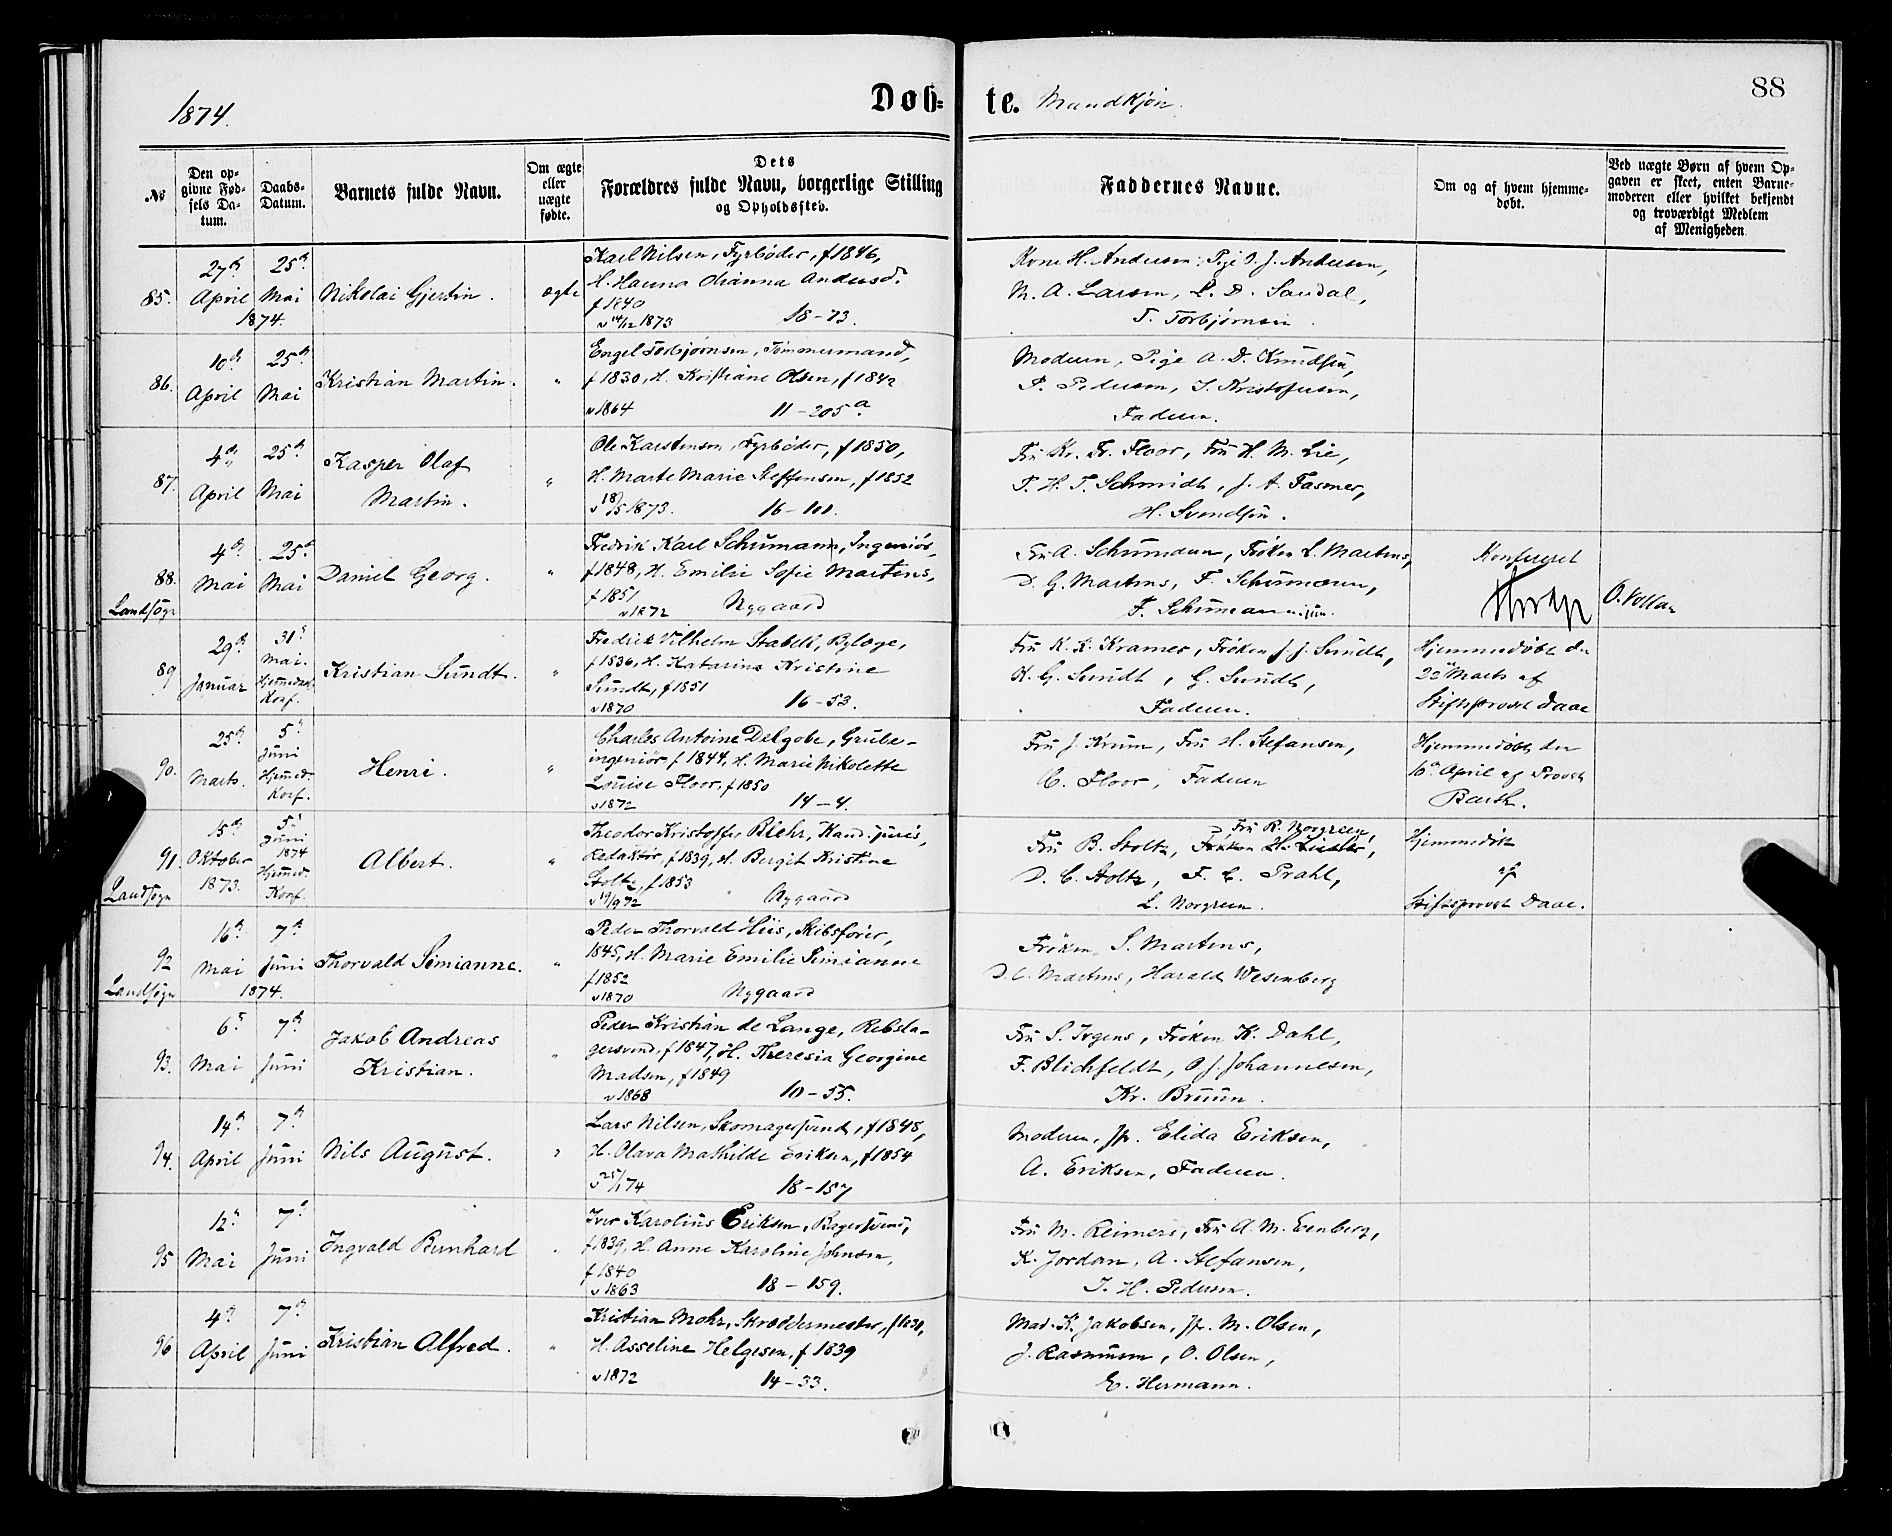 1874.
Døb-
te. Mandkjøn.
88
No
Den op-
givne Fød-
sels Da-
tum.
Daabs-
Datum.
Barnets fulde Navn.
Om ægte
eller
uægte
fødte.
Dets
Forældres fulde Navn, borgerlige Stilling
og Opholdssted.
Faddernes Navne.
Om og af hvem hjemme-
døbt.
Ved uægte Børn af hvem Op-
gaven er skeet, enten Barne-
moderen eller hvilket bekjendt
og troværdigt Medlem
af Menigheden
85.
27de
April
25de
Mai
1874.
Nikolai Gjertin.
ægte
Karl Nilsen, Fyrbøder, f 1846,
H. Hanna Dianna Andersd.
f 1840
v 14/12 1873 18-73.
Kone H. Andersen, Pige J. Andersen,
M. A. Larsen, L. D. Sandal,
T. Torbjørnsen
86.
10de
April
25de
Mai
Kristian Martin.
"
Engel Torbjørnsen, Tømmermand,
f 1830, H. Kristiane Olsen, f 1842
v 1864 11-205a.
Moderen, Pige A. D. Knudsen,
P. Pedersen, S. Kristofersen,
Faderen.
87.
4de
April
25de
Mai
Kasper Olaf
Martin.
"
Ole Karstensen, Fyrbøder, f 1850,
H. Marte Marie Steffensen, f 1852
v 18/5 1873. 16-101.
Fru Kr. Fr. Floor, Fru H. M. Lie,
P. H. T. Schmidt, J. A. Fasmer,
H. Svendsen.
88.
Landsogn
4de
Mai
25de
Mai
Daniel Georg.
"
Fredrik Karl Schumann, Ingeniør,
f 1848, H. Emilie Sofie Martens,
f 1851
v 1872 Nygaard
Fru A. Schumann, Frøken L. Martens,
D. G. Martens, F. Schumann,
F. Schumann jun.
Konfereret
O. Vollan
89
29de
Januar
31te
Mai.
Hjemmed.
Konf.
Kristian Sundt.
"
Fredrik Vilhelm Stabell, Bylæge,
f 1836, H. Katarina Kristine
Sundt, f 1851
v 1870 16-53.
Fru K. K. Kramer, Frøken J. J. Sundt,
K. G. Sundt, G. Sundt,
Faderen.
Hjemmedøbt den
22 Marts af
Stiftsprovst Daae
90.
25de
Marts.
5te
Juni
Hjemmed.
Konf.
Henri.
"
Charles Antoine Delgobe, Grube-
ingeniør f 1844, H. Marie Nikolette
Louise Floor, f 1850
v 1872 14-4.
Fru J. Krum, Fru H. Stefansen,
C. Floor, Faderen
Hjemmedøbt den
10de April af Provst
Barth.
91.
Landsogn
15de
Oktober
1873.
5te
Juni
1874
Hjemmed.
Konf.
Albert.
"
Theodor Kristoffer Blehr, Kand. juris,
Redaktør, f 1839, H. Bergit Kristine
Stoltz, f 1853
v 19/9 72 Nygaard
Fru R. Norgreen,
Fru B. Stoltz,
D. C. Stoltz, F. C. Prahl,
L. Norgreen.
Hjemmedøbt
af
Stiftsprovst Daae.
92
Landsogn
16de
Mai
7de
Juni
1874.
Thorvald Simianne.
"
Peder Thorvald Hiis, Skibsfører,
1845, H. Marie Emilie Simianne
f 1852
v 1870 Nygaard
Frøken S. Martens,
D. C. Martens, Harald Wesenberg
93.
6te
Mai
7de
Juni
Jakob Andreas
Kristian.
"
Peder Kristian de Lange, Rebsla-
gersvend, f 1847, H. Theresia Georgine
Madsen, f 1849
v 1868 10-55.
Fru S. Irgens, Frøken K. Dahl,
F. Blichfeldt, O. J. Johannesen,
Kr. Bruun.
94.
14de
April
7de
Juni
Nils August.
"
Lars Nilsen, Skomagersvend, f 1848,
H. Olava Mathilde Eriksen, f 1854
v 25/1 74 18-157
Moderen, Jfr. Elida Eriksen,
A. Eriksen, Faderen.
95
12te
Mai
7de
Juni
Ingvald Bernhard
"
Iver Karolius Eriksen, Bagersvend,
f 1839, H. Anne Karoline Johnsen,
f 1840
v 1863 18-159.
Fru M. Reimers, Fru A. M. Evenberg,
K. Jordan, A. Stefansen,
J. H. Pedersen.
96
4de
April
7de
Juni
Kristian Alfred.
"
Kristian Mohr, Skræddermester, f 1831,
H. Asseline Helgesen, f 1839
v 1872 14-33.
Mad. K. Jakobsen, Jfr. M. Olsen,
J. Rasmusen, O. Olsen,
E. Hermann.